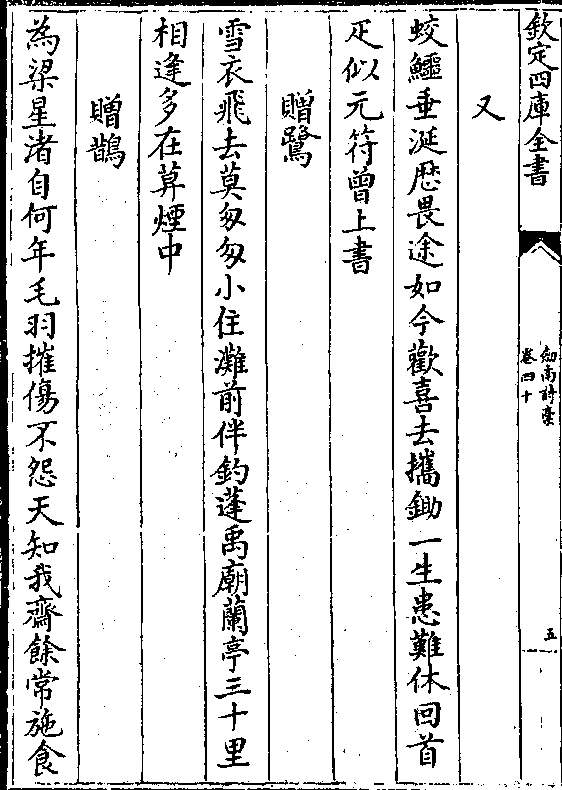 欽定四庫全書
劒南詩槀
卷四十
五
又
蛟鱷垂涎歴畏途如今歡喜去攜鋤一生患難休回首
疋似元符曾上書
贈鷺
雪衣飛去莫匆匆小住灘前伴釣蓬禹廟蘭亭三十里
相逢多在暮煙中
贈鵲
為梁星渚自何年毛羽摧傷不怨天知我齋餘常施食